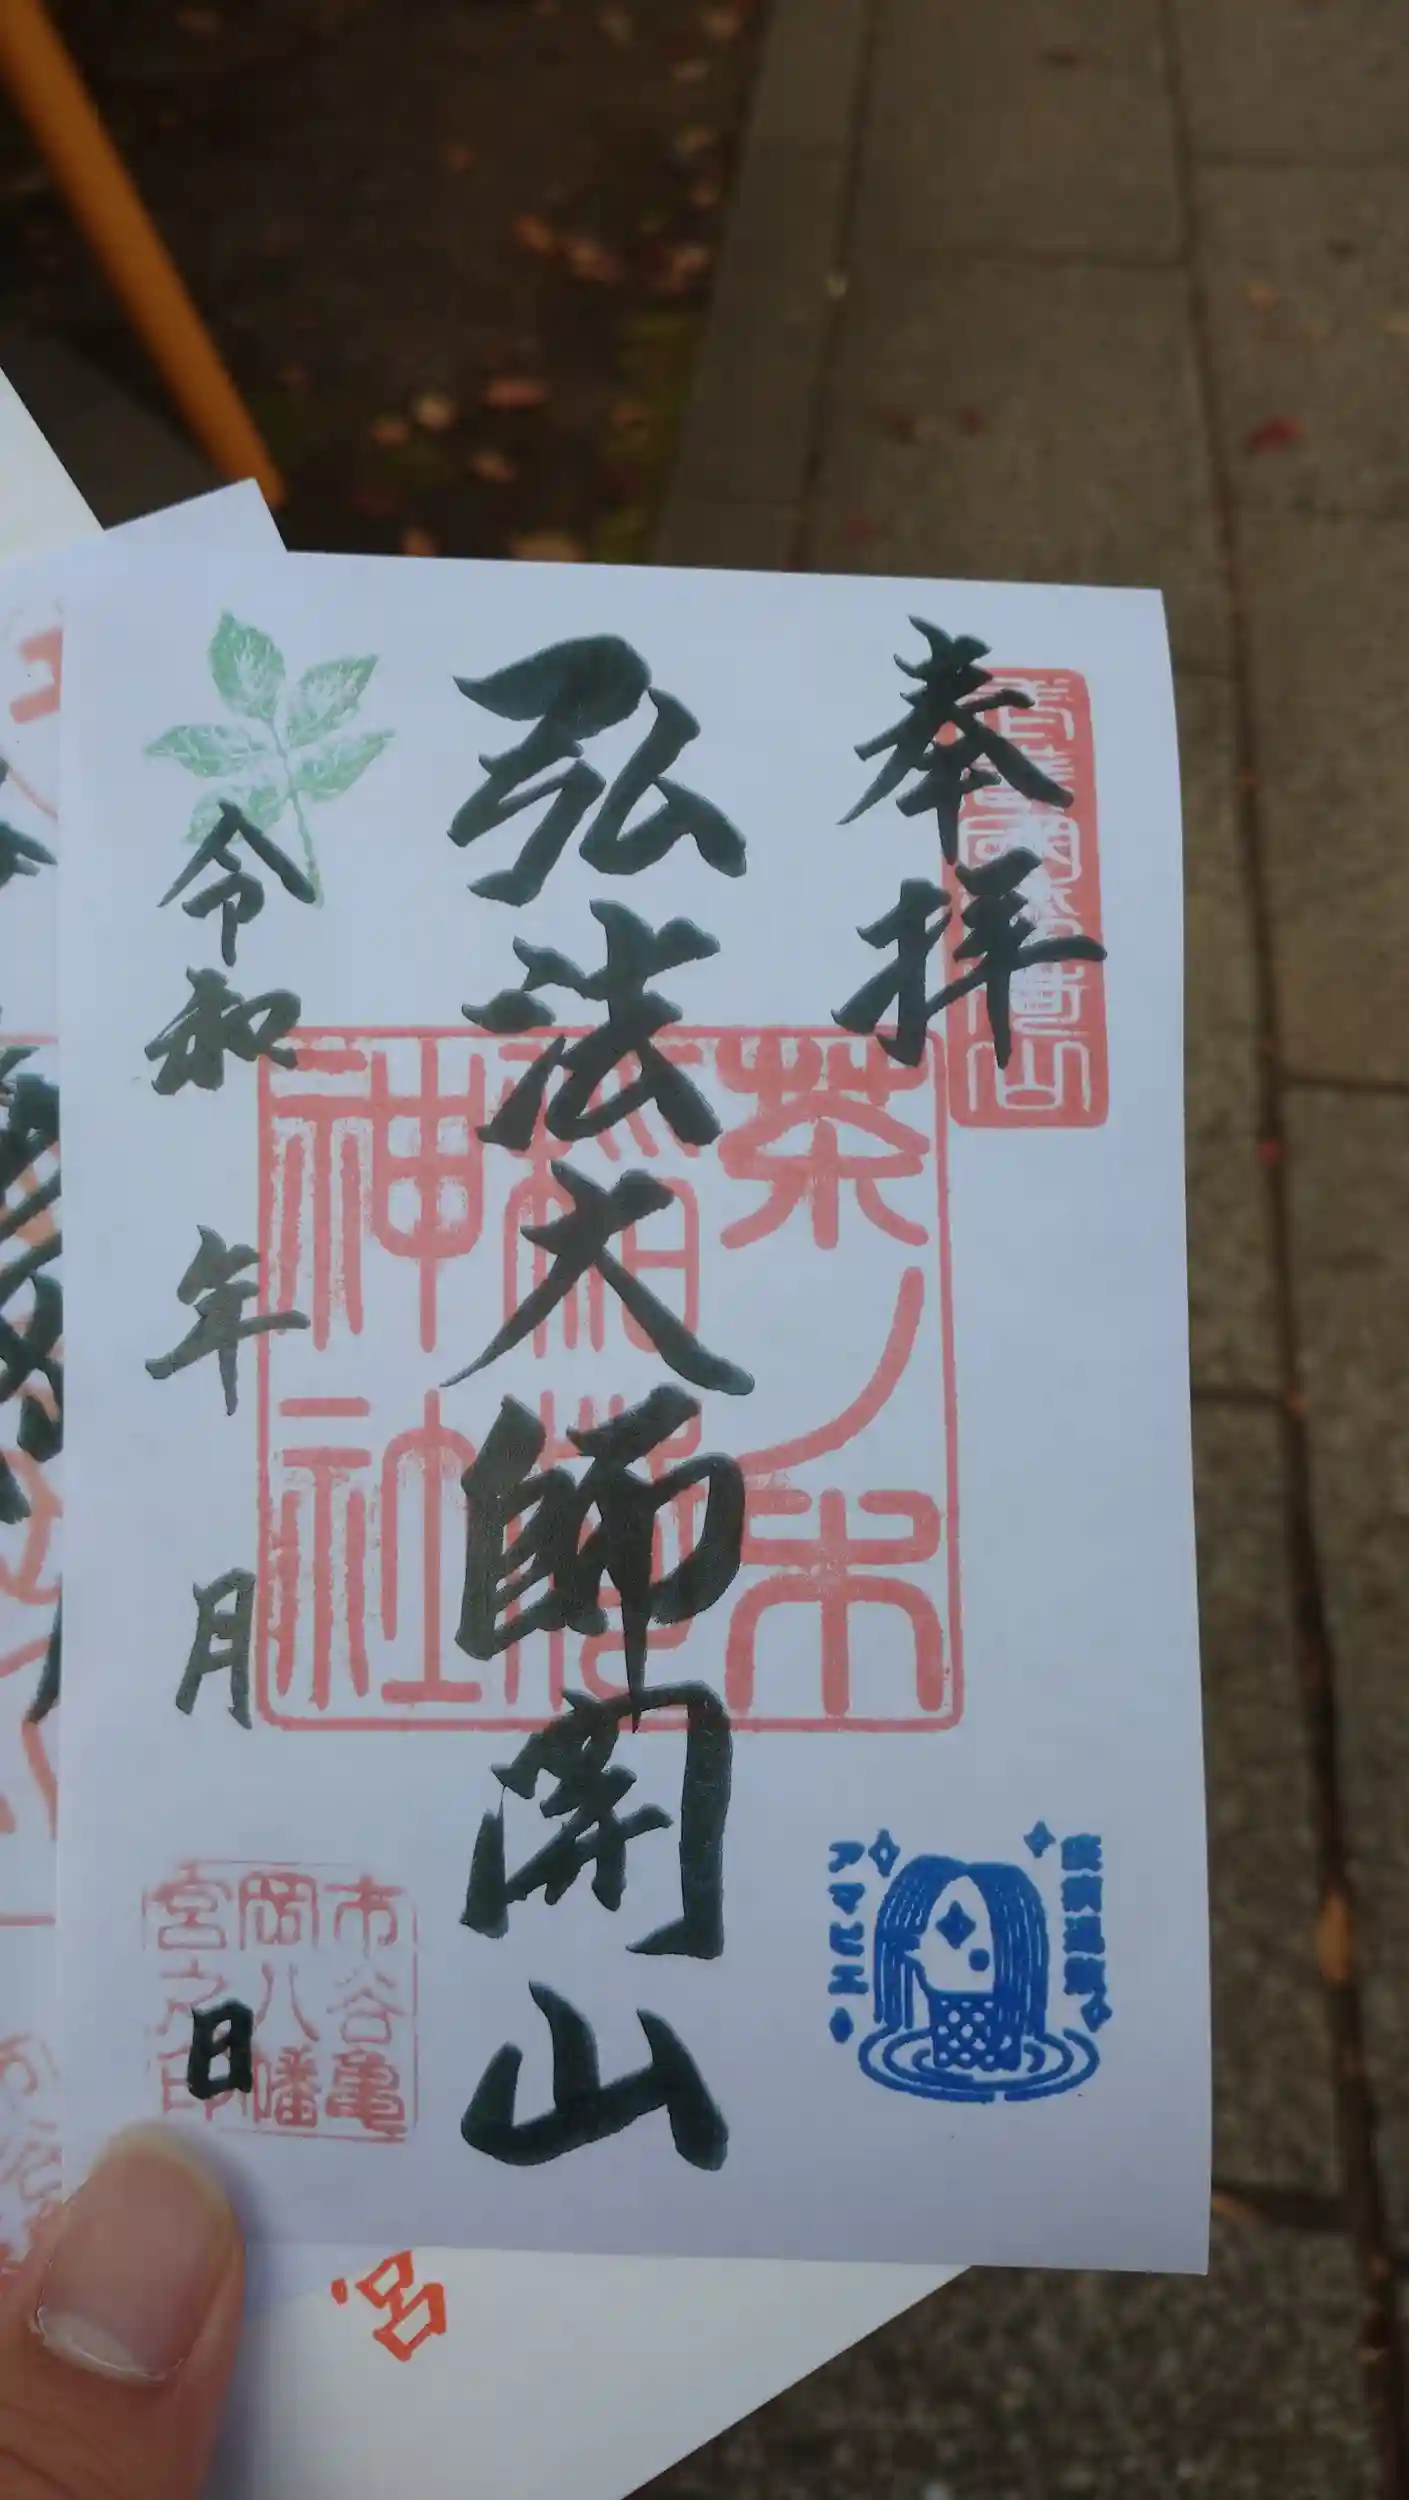 奉拝
弘法大師開山
茶ノ木
稲荷
神社
令和 年 月 日
市谷亀
岡八幡
宮之印
アマビエ
宮